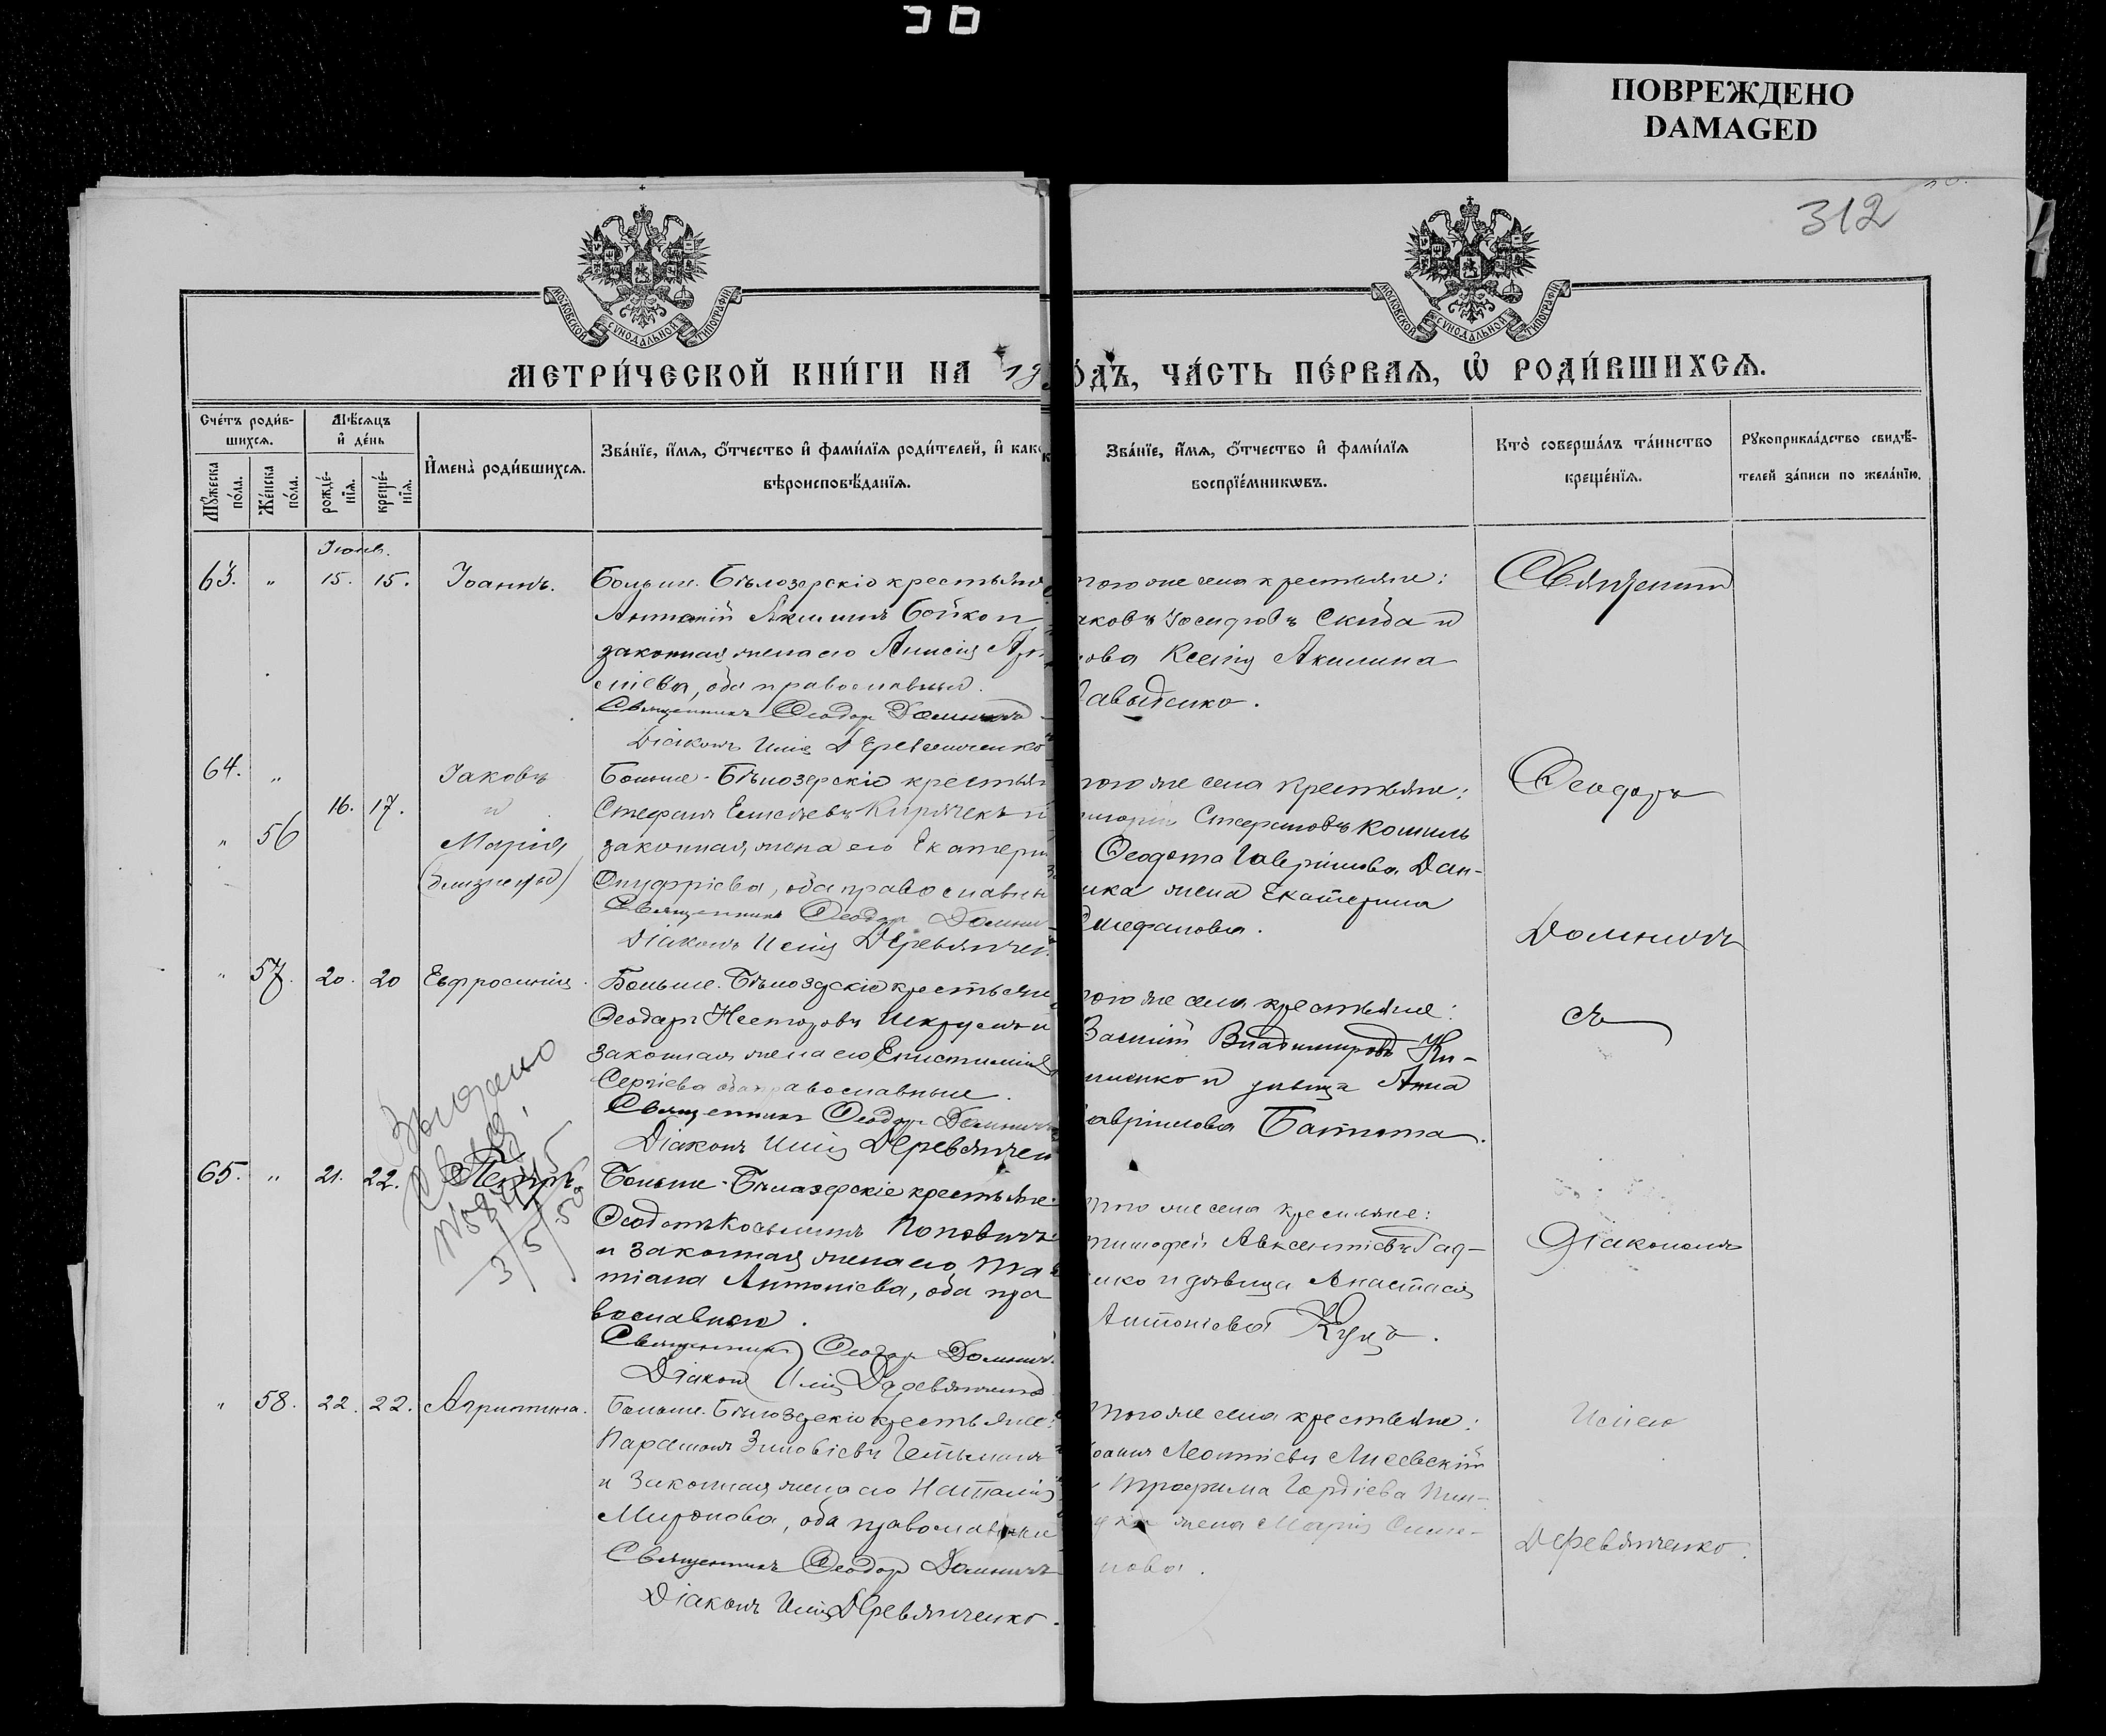 ПОВРЕЖДЕНО
DAMAGED
312
МОСКОВСКОЙ СѴНОДАЛЬНОЙ ТИПОГРАФІИ
МОСКОВСКОЙ СѴНОДАЛЬНОЙ ТИПОГРАФІИ
МЕТРИ́ЧЕСКОЙ КНИ́ГИ НА 19
О́ДЪ, ЧА́СТЬ ПЕ́РВАѦ, Ѡ҆ РОДИ́ВШИХСѦ.
Сче́тъ роди́в-
шихсѧ.
Мꙋ́жеска по́ла.
Же́нска по́ла.
Мѣ́сѧцъ
и҆ де́нь
рожде́-
нїѧ.
креще́-
нїѧ.
И҆мена̀ роди́вшихсѧ.
Зва́нїе, и҆́мѧ, ѻ҆́тчество и҆ фами́лїѧ роди́телей, и҆ како
вѣроисповѣ́данїѧ.
Зва́нїе, и҆́мѧ, ѻ҆́тчество и҆ фами́лїѧ
воспрїе́мникѡвъ.
Кто̀ соверша́лъ та́инство
креще́нїѧ.
Рꙋкоприкла́дство свидѣ́-
телей за́писи по жела́нїю.
63. " 15. 15. Іоаннъ. Больше-Бѣлозерскіе крестьяне
Антоній Акиминъ Бойко и
законная жена его Анисія
обa православные.
Священникъ Ѳеодоръ Домничъ
Діаконъ Исаія Деревянченко
того же села крестьяне:
аковъ Іосифовъ Скиба и
ова Ксенія Акимина
авыденко.
Священникъ
64. " Іаковъ
и
16. 17.
" 56 Марія
(близнецы)
Больше-Бѣлозерскіе крестьян
Стефанъ Елисѣевъ Кирячекъ и
законная жена его Екатерин
Онуфріева, оба православны
Священникъ Ѳеодоръ Домнич
Діаконъ Исаія Деревянчен
того же села крестьяне:
игорій Стефановъ Кошиль
Ѳеодота Гавріилова Дан-
ика жена Екатерина
Стефанова.
Ѳеодоръ
Домничъ
" 57. 20. 20 Евфросинія. Больше-Бѣлозерскіе крестьяне
Ѳеодоръ Несторовъ и
законная жена его Епистимія
Сергіева оба православные.
Священникъ Ѳеодоръ Домничъ
Діаконъ Исаія Деревянчен
того же села крестьяне:
Василій Владимировъ Ки-
ленко и дѣвица Анна
авріилова
съ
65. " 21. 22. Петръ. Больше-Бѣлозерскіе крестьяне:
Ѳеодотъ Косьминъ Поповичъ
и законная жена его Та
тіана Антоніева, оба пра
вославные.
Священникъ Ѳеодоръ Домнич
Діаконъ Исаія Деревянченко
Выдано
3/5/50
того же села крестьяне:
Тимофей Авксентіевъ Гад-
енко и дѣвица Анастасія
Антоніева Куцъ.
Діакономъ
" 58. 22. 22. Агриппина. Больше-Бѣлозерскіе крестьяне:
Парамонъ Зиновіевъ Гетьманъ
и законная жена его Наталія
Миронова, оба православные
Священникъ Ѳеодоръ Домничъ
Діаконъ Исаія Деревянченко.
того же села крестьяне:
оаннъ Леонтіевъ Лисевскій
Трофима Гордіева
жена Марія Симе-
нова.
Исаіею
Деревянченко.